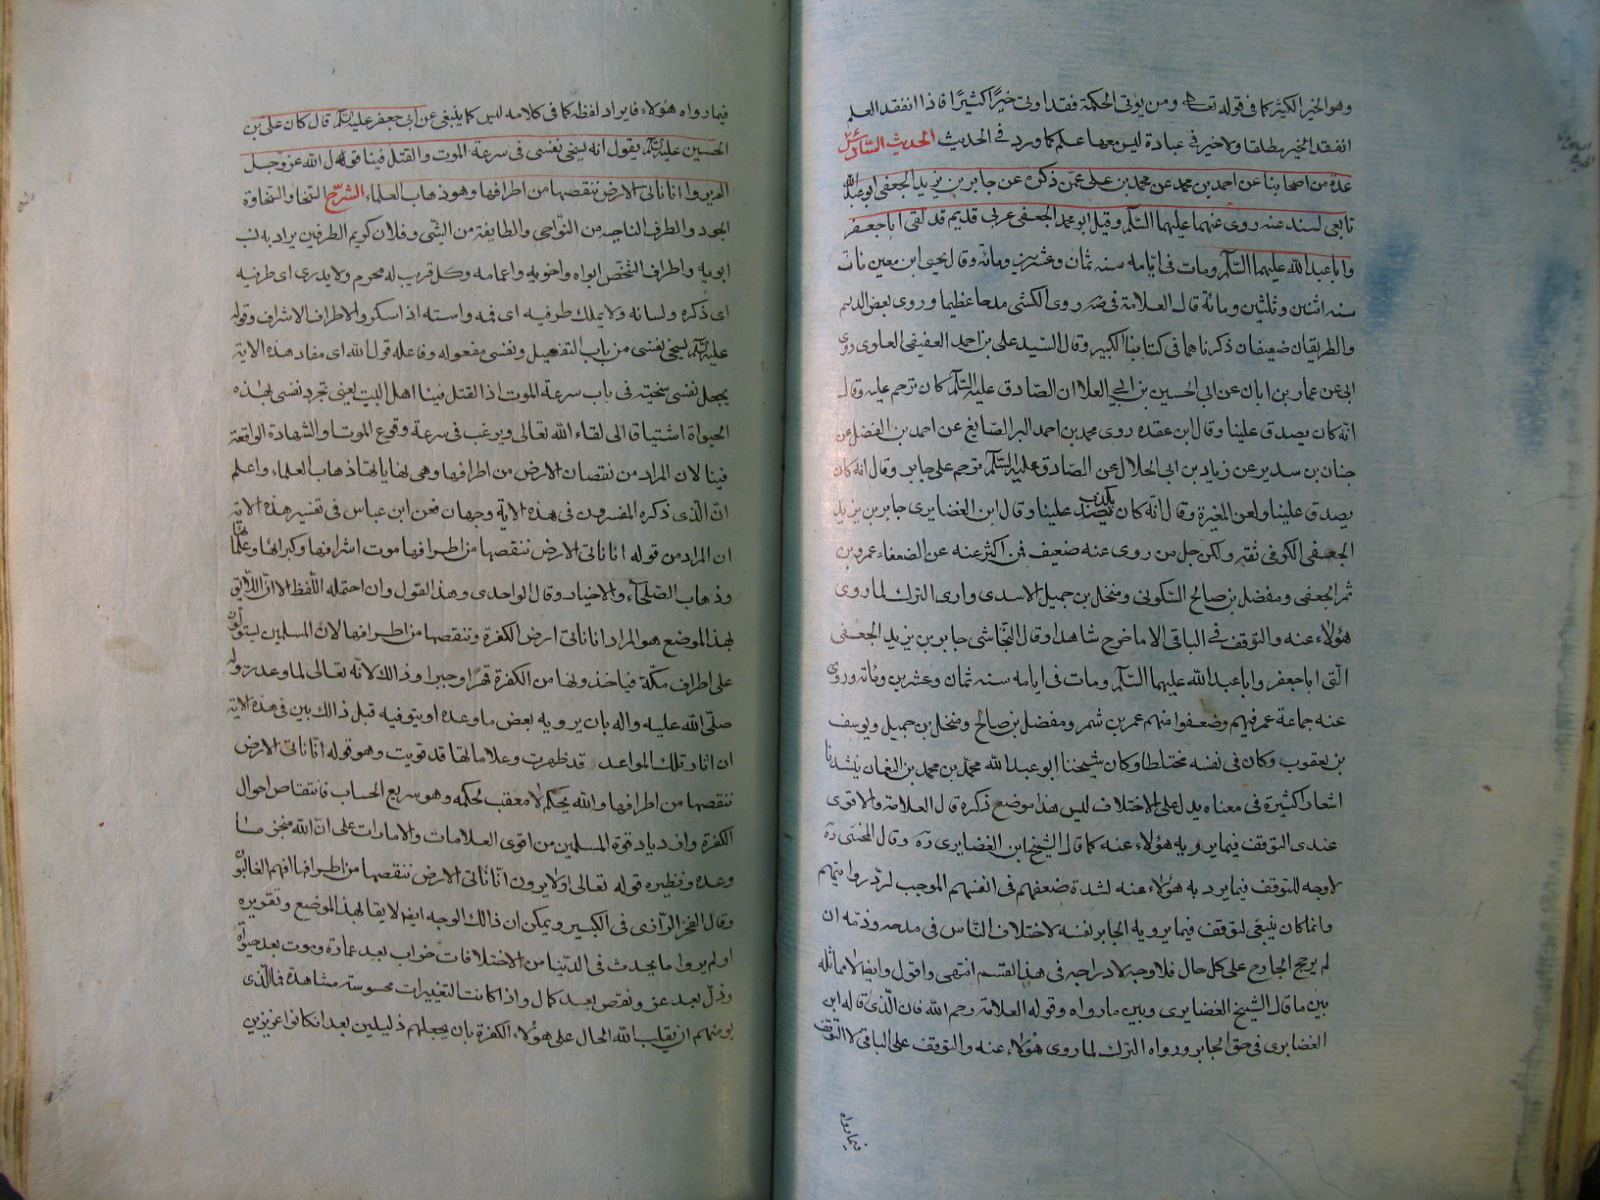 وهو الخير الكثير كما في قوله تعالى ومن يؤتى الحكمة فقد اوتى خيرًا كثيرًا فاذا انفقد العلم
انفقد الخير مطلقا ولا خير في عبادة ليس معها علم كما ورد في الحديث الحديث السّادس
عدة من اصحابنا عن احمد بن محمد عن محمد بن على عمّن ذكره عن جابر بن يزيد الجعفى ابو عبدالله
تابعى اسند عنه روى عنهما عليهما السّلم وقيل ابو محمد الجعفى عربى قديم قد لقى ابا جعفر
وابا عبد الله عليهما السّلم ومات في ايّامه سنه ثمان وعشرين ومائه وقال يحيى ابن معين مات
سنه اثنين وثلثين ومائة قال العلامة في روى الكشى مدحا عظيما وروى بعض الذم
والطريقان ضعيفان ذكرناهما في كتابنا الكبير وقال السّيد على بن احمد العقيقى العلوى روى
ابى عن عمار بن ابان عن ابى الحسين بن ابي العلا ان الصّادق عليه السّلم كان ترحم عليه وقال
انّه كان يصدق علينا وقال ابن عقده روى محمد بن احمد البر الصّايغ عن احمد بن الفضل عن
حنان بن سدير عن زياد بن ابى الحلال عن الصّادق عليه السّلم ترحم على جابر وقال انه كان
يصدق علينا ولعن المغيرة وقال انّه كان يكذب علينا وقال ابن الغضايرى جابر بن يزيد
الجعفى الكوفى ثقه ولكن جل من روى عنه ضعيف فمن اكثر عنه عن الضعفاء عمرو بن
شمر الجعفى ومفضل بن صالح السّكونى ومنخل بن جميل الاسدى وارى الترك لما روى
هؤلاء عنه والتوقف في الباقى الا ما خرج شاهدا وقال النّجاشى جابر بن يزيد الجعفى
لقى ابا جعفر وابا عبد الله عليهما السّلم ومات في ايامه سنه ثمان وعشرين ومائه وروى
عنه جماعة غمز فيهم وضعفوا منهم عمر بن شمر ومفضل بن صالح ومنخل بن جميل ويوسف
بن يعقوب وكان في نفسه مختلطا وكان شيخنا ابو عبد الله محمد بن محمد بن النعمان ينشدنا
اشعار كثيرة في معناه يدل على الاختلاف ليس هذا موضع ذكره قال العلامة والاقوى
عندى التوقف فيما يرويه هؤلاء عنه كما قال الشيخ ابن الغضايرى ره وقال المحشى ره
لا وجه للتوقف فيما يرويه هؤلاء عنه لشدة ضعفهم في انفسهم الموجب لرد روايتهم
وانما كان ينبغى لتوقف فيما يرويه الجابر نفسه لاختلاف النّاس في مدحه وذمّه ان
لم يرجح الجارح على كل حال فلا وجه لادراجه في هذا القسم انتهى واقول وايضا لا مماثله
بين ما قال الشيخ الغضايرى وبين ما رواه وقوله العلامة رحمه الله فان الّذى قاله ابن
الغضايرى في حق الجابر ورواه الترك لما روى هؤلاء عنه والتوقف على الباقى لا التوقف
فيما رواه
فيما رواه هؤلاء فايراد لفظه كما في كلامه ليس كما ينبغى عن ابى جعفر عليه السّلم قال كان على بن
الحسين عليه السّلم يقول انه ليسخى نفسى في سرعة الموت والقتل فينا قول الله عز وجل
الم يروا انا ناتى الارض ننقصها من اطرافها وهو ذهاب العلماء الشّرح السّخا والسّخاوة
الجود والطرف الناحيه من النّواحى والطايفة من الشّى وفلان كريم الطرفين يراد به نسب
ابويه واطراف الشّخص ابواه واخويه واعمامه وكل قريب له محرم ولا يدرى اى طرفيه
اى ذكره ولسانه ولا يملك طرفيه اى فمه واسته اذا سكر والاطراف الاشراف وقوله
عليه السّلم يسخى نفسى من باب التفعيل ونفسى مفعوله وفاعله قول الله اى مفاد هذه الاية
يجعل نفسى سخيّه في باب سرعة الموت اذ القتل فينا اهل البيت يعنى تجرد نفسى لهذه
الحيواة اشتياقا الى لقاء الله تعالى ويرغب في سرعة وقوع الموت والشهادة الواقعة
فينا لان المراد من نقصان الارض من اطرافها وهى نهاياتها ذهاب العلماء واعلم
انّ الّذى ذكره المفسرون في هذه الاية وجهان فعن ابن عباس في تفسير هذه الاية
ان المراد من قوله انا ناتى الارض ننقصها من اطرافها موت اشرافها وكبرائها وعلمائها
وذهاب الصّلحاء والاخيار وقال الواحدى وهذا القول وان احتمله اللّفظ الا انّ اللّايق
لهذا الموضع هو المراد انا ناتى ارض الكفرة وننقصها من اطرافها لانّ المسلمين ليتولون
على اطراف مكّة فياخذونها من الكفرة قهرًا وجبرا وذلك لانّه تعالى لما وعد رسوله
صلّى الله عليه واله بان يرويه بعض ما وعده او يتوفيه قبل ذالك بين في هذه الاية
ان اثار تلك المواعد قد ظهرت وعلاماتها قد قويت وهو قوله انّا ناتى الارض
ننقصها من اطرافها والله يحكم لا معقب لحكمه وهو سريع الحساب فانتقاص احوال
الكفرة وازدياد قوة المسلمين من اقوى العلامات والامارات على انّ الله منجز ما
وعده ونظيره قوله تعالى اولا يرون انّا ناتى الارض ننقصها من اطرافها افهم الغالبون
وقال الفخر الرّازى في الكبير ويمكن ان ذالك الوجه ايضا لايقا لهذا الموضع وتقريره
اولم يروا ما يحدث في الدّنيا من الاختلافات خراب بعد عمارة وموت بعد حيواة
وذلّ بعد عز ونقص بعد كمال واذا كانت التغييرات محسوسة مشاهدة فما الّذى
يومنهم ان يقلب الله الحال على هؤلاء الكفرة بان يجعلهم ذليلين بعد ان كانوا عزيزين